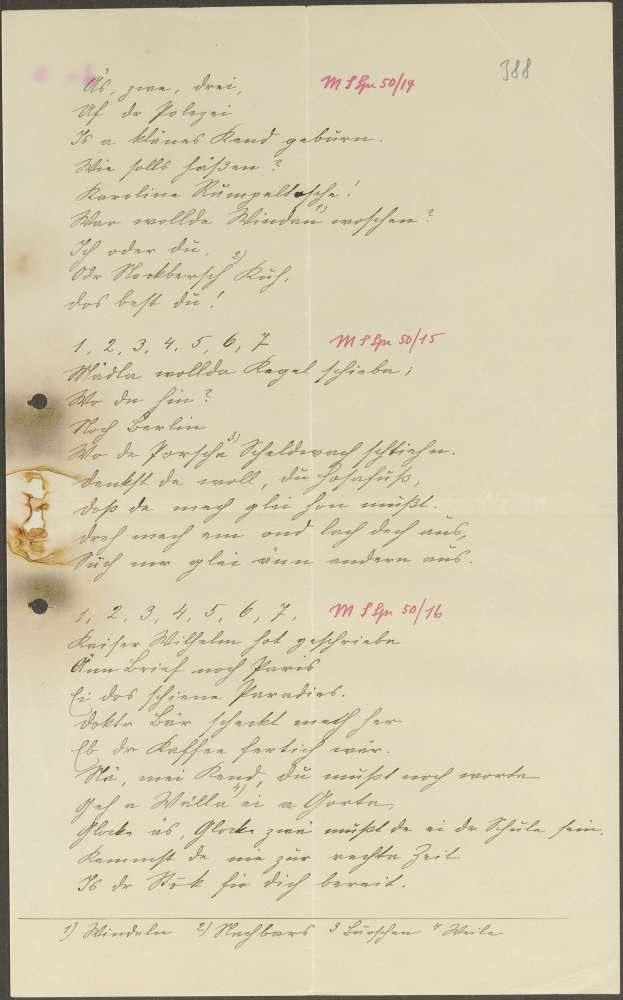 388
Äs, zwe, drei, M S Spr 50/14
Uf dr Polizei
Is a klänes Kend geburn.
Wie solls häßen?
Karoline Rumpeltasche!
War wollde Windan 1) woschen?
Ich oder du,
Odr Nockbersch 2) Kuh,
dos best du!
1, 2, 3, 4, 5, 6, 7 M S Spr 50/15
Mädla wollda Kegel schieba;
Wo da hin?
Noch Berlin
Wo de Porscha 3) Scheldwach schtiehn.
Denkst de woll, du Hosafuß,
doß de mech glei hon mußt.
Dreh mech em ond lach dech aus,
Such mr glei änn andern aus.
1, 2, 3, 4, 5, 6, 7, M S Spr 50/16
Kaiser Wilhelm hot geschrieba
Änn Brief noch Paris
Ei dos schiene Paradies.
Doktr Bär scheckt meth her
Eb dr Kaffee fertich wär.
Nä, mei Kend, du mußt noch worta
Geh a Wälla 4) ei a Gorta,
Glocke äs, Glocke zwä mußt de ei dr Schule sein.
Kemmst de nie zur rechta Zeit
Is dr Stok fir dich bereit.
1) Windeln 2) Nachbars 3 Burschen 4 Weile